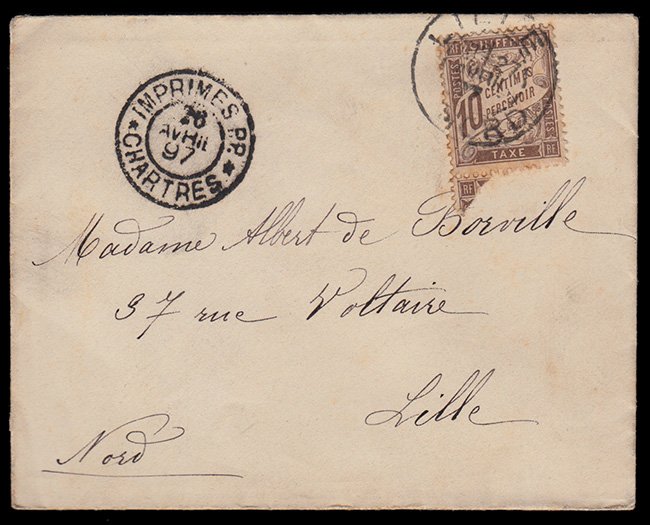 IMPRIMES PP.
AVRIL
97
CHARTRES
RF CHIFFRE
POSTES
10 CENTIMES
A
PERCEVOIR
TAXE RF
RF
Madame Albert de Borville
37 rue Voltaire
Lille
Nord